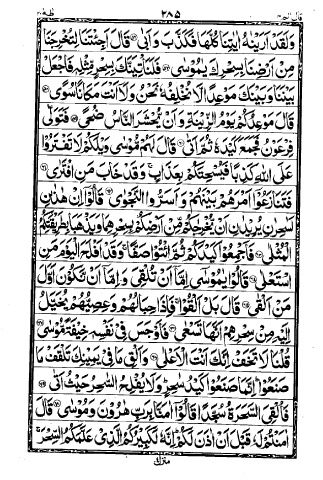 ٢٨٥
وَلَقَدْ اَرَيْنٰهُ اٰيٰتِنَا كُلَّهَا فَكَذَّبَ وَاَبٰى ۝ قَالَ اَجِئْتَنَا لِتُخْرِجَنَا
مِنْ اَرْضِنَا بِسِحْرِكَ يٰمُوْسٰى ۝ فَلَنَاْتِيَنَّكَ بِسِحْرٍ مِّثْلِهٖ فَاجْعَلْ
بَيْنَنَا وَبَيْنَكَ مَوْعِدًا لَّا نُخْلِفُهٗ نَحْنُ وَلَآ اَنْتَ مَكَانًا سُوًى ۝
قَالَ مَوْعِدُكُمْ يَوْمُ الزِّيْنَةِ وَاَنْ يُّحْشَرَ النَّاسُ ضُحًى ۝ فَتَوَلّٰى
فِرْعَوْنُ فَجَمَعَ كَيْدَهٗ ثُمَّ اَتٰى ۝ قَالَ لَهُمْ مُّوْسٰى وَيْلَكُمْ لَا تَفْتَرُوْا
عَلَى اللّٰهِ كَذِبًا فَيُسْحِتَكُمْ بِعَذَابٍ ۚ وَقَدْ خَابَ مَنِ افْتَرٰى ۝
فَتَنَازَعُوْٓا اَمْرَهُمْ بَيْنَهُمْ وَاَسَرُّوا النَّجْوٰى ۝ قَالُوْٓا اِنْ هٰذٰنِ
لَسٰحِرٰنِ يُرِيْدٰنِ اَنْ يُّخْرِجٰكُمْ مِّنْ اَرْضِكُمْ بِسِحْرِهِمَا وَيَذْهَبَا بِطَرِيْقَتِكُمُ
الْمُثْلٰى ۝ فَاَجْمِعُوْا كَيْدَكُمْ ثُمَّ ائْتُوْا صَفًّا ۚ وَقَدْ اَفْلَحَ الْيَوْمَ مَنِ
اسْتَعْلٰى ۝ قَالُوْا يٰمُوْسٰٓى اِمَّآ اَنْ تُلْقِيَ وَاِمَّآ اَنْ نَّكُوْنَ اَوَّلَ
مَنْ اَلْقٰى ۝ قَالَ بَلْ اَلْقُوْا ۚ فَاِذَا حِبَالُهُمْ وَعِصِيُّهُمْ يُخَيَّلُ
اِلَيْهِ مِنْ سِحْرِهِمْ اَنَّهَا تَسْعٰى ۝ فَاَوْجَسَ فِيْ نَفْسِهٖ خِيْفَةً مُّوْسٰى ۝
قُلْنَا لَا تَخَفْ اِنَّكَ اَنْتَ الْاَعْلٰى ۝ وَاَلْقِ مَا فِيْ يَمِيْنِكَ تَلْقَفْ مَا
صَنَعُوْا ۖ اِنَّمَا صَنَعُوْا كَيْدُ سٰحِرٍ ۖ وَلَا يُفْلِحُ السّٰحِرُ حَيْثُ اَتٰى ۝
فَاُلْقِيَ السَّحَرَةُ سُجَّدًا قَالُوْٓا اٰمَنَّا بِرَبِّ هٰرُوْنَ وَمُوْسٰى ۝ قَالَ
اٰمَنْتُمْ لَهٗ قَبْلَ اَنْ اٰذَنَ لَكُمْ ۖ اِنَّهٗ لَكَبِيْرُكُمُ الَّذِيْ عَلَّمَكُمُ السِّحْرَ ۚ
منزل